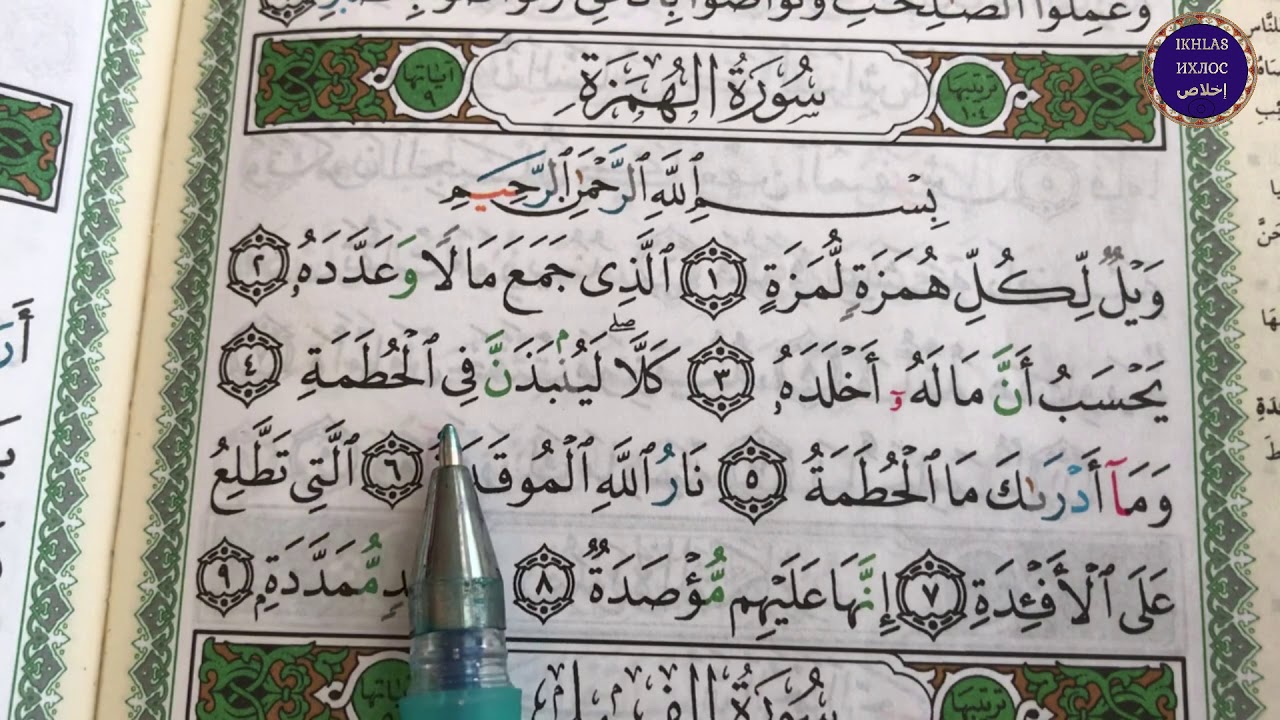 وَعَمِلُوا۟ ٱلصَّـٰلِحَـٰتِ وَتَوَاصَوْا۟ بِٱلْحَقِّ وَتَوَاصَوْا۟
IKHLAS
ИХЛОС
إخلاص
ترتيبها ١٠٤ سُورَةُ الهُمَزَةِ آياتها ٩
بِسْمِ ٱللَّهِ ٱلرَّحْمَـٰنِ ٱلرَّحِيمِ
وَيْلٌ لِّكُلِّ هُمَزَةٍ لُّمَزَةٍ ١ ٱلَّذِى جَمَعَ مَالًا وَعَدَّدَهُۥ ٢
يَحْسَبُ أَنَّ مَالَهُۥٓ أَخْلَدَهُۥ ٣ كَلَّا ۖ لَيُنۢبَذَنَّ فِى ٱلْحُطَمَةِ ٤
وَمَآ أَدْرَىٰكَ مَا ٱلْحُطَمَةُ ٥ نَارُ ٱللَّهِ ٱلْمُوقَدَ ٦ ٱلَّتِى تَطَّلِعُ
عَلَى ٱلْأَفْـِٔدَةِ ٧ إِنَّهَا عَلَيْهِم مُّؤْصَدَةٌ ٨ دٍ مُّمَدَّدَةٍۭ ٩
سُورَةُ الفِيلِ